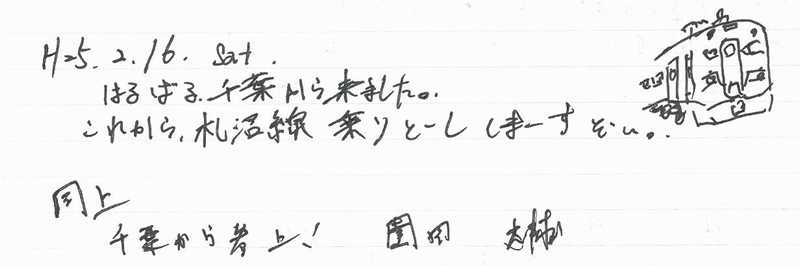 H25.2.16. Sat.
はるばる、千葉から来ました。
これから、札沼線 乗りとーしまーすぞい。
同上
千葉から参上! 園田